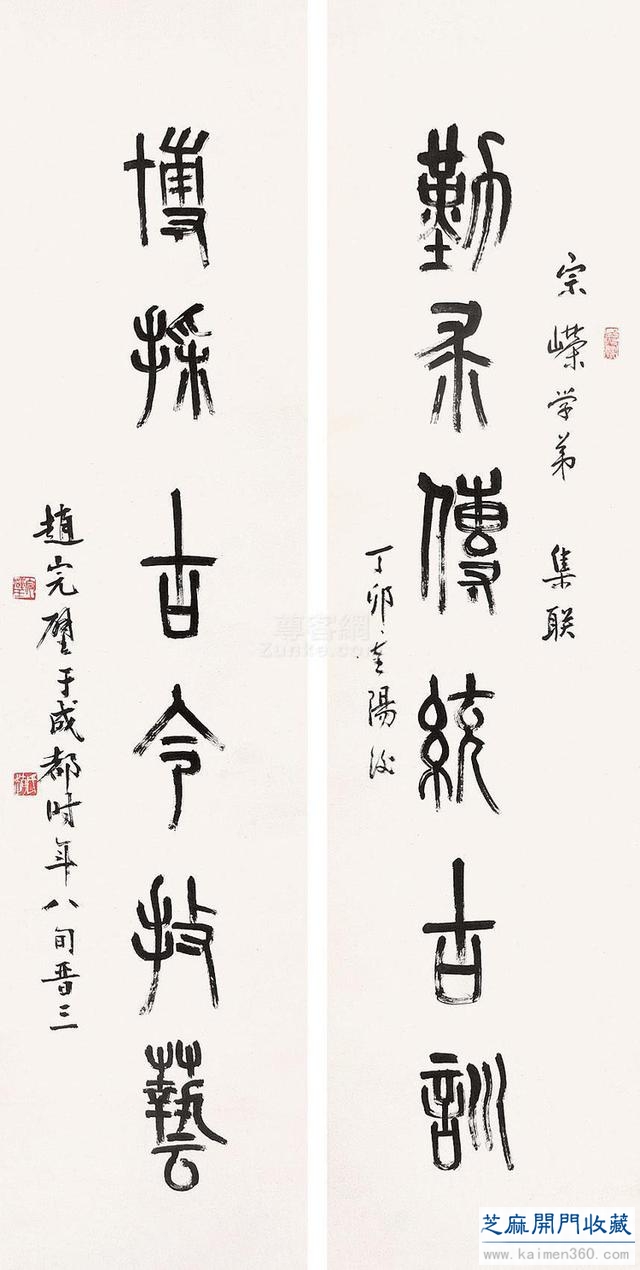 宗嶸学弟 集联
勤求傳統古訓
丁卯重陽後
博採古今技藝
趙完璧于成都时年八旬晋三
尊客網
Zunke.com
芝麻開門收藏
www.kaimen360.com